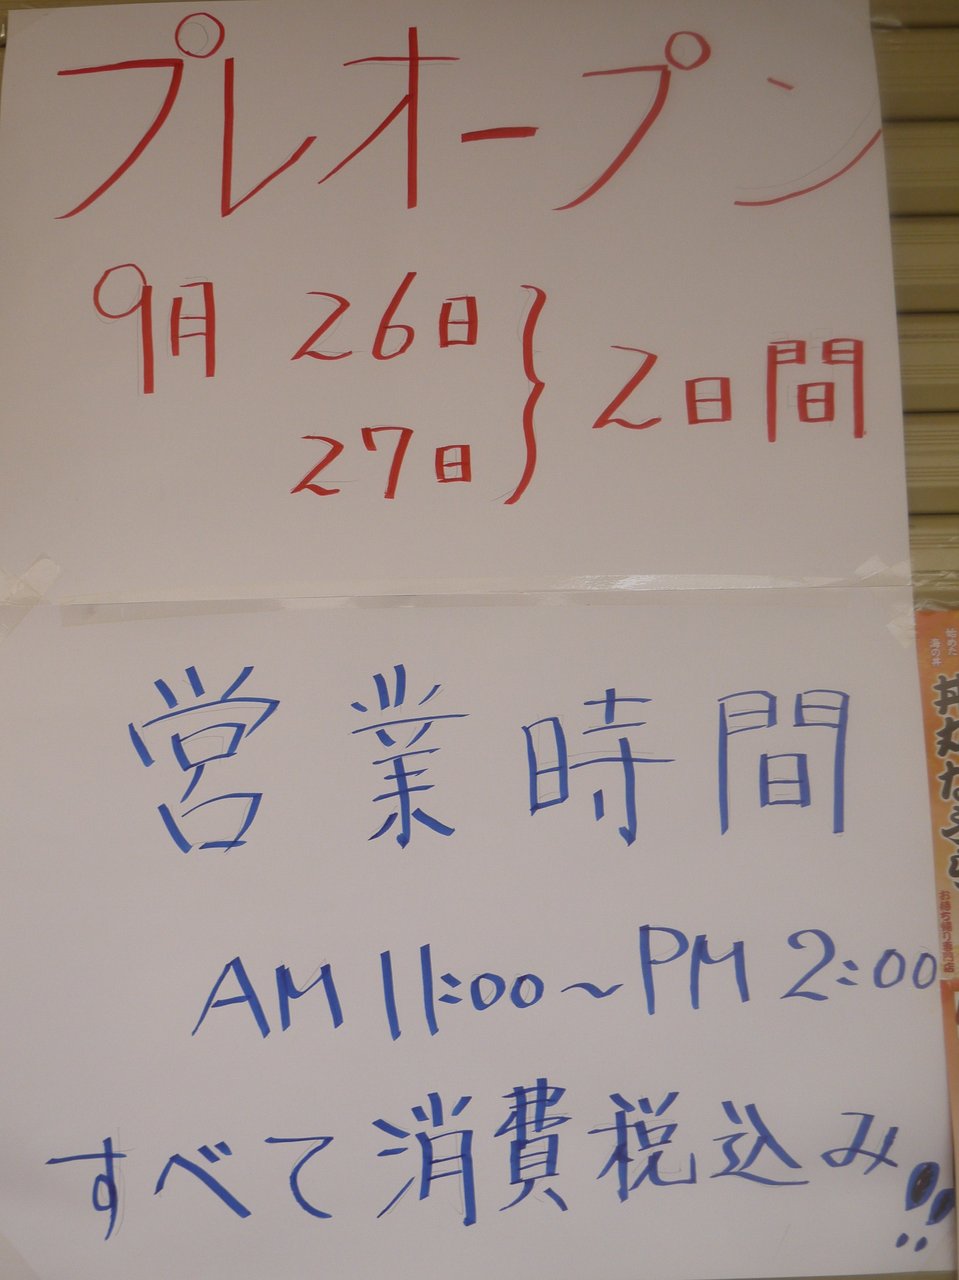 プレオープン
9月 26日
27日 } 2日間
営業時間
AM 11:00～PM 2:00
すべて消費税込み!!
始めた
海の丼
お持ち帰り専門店